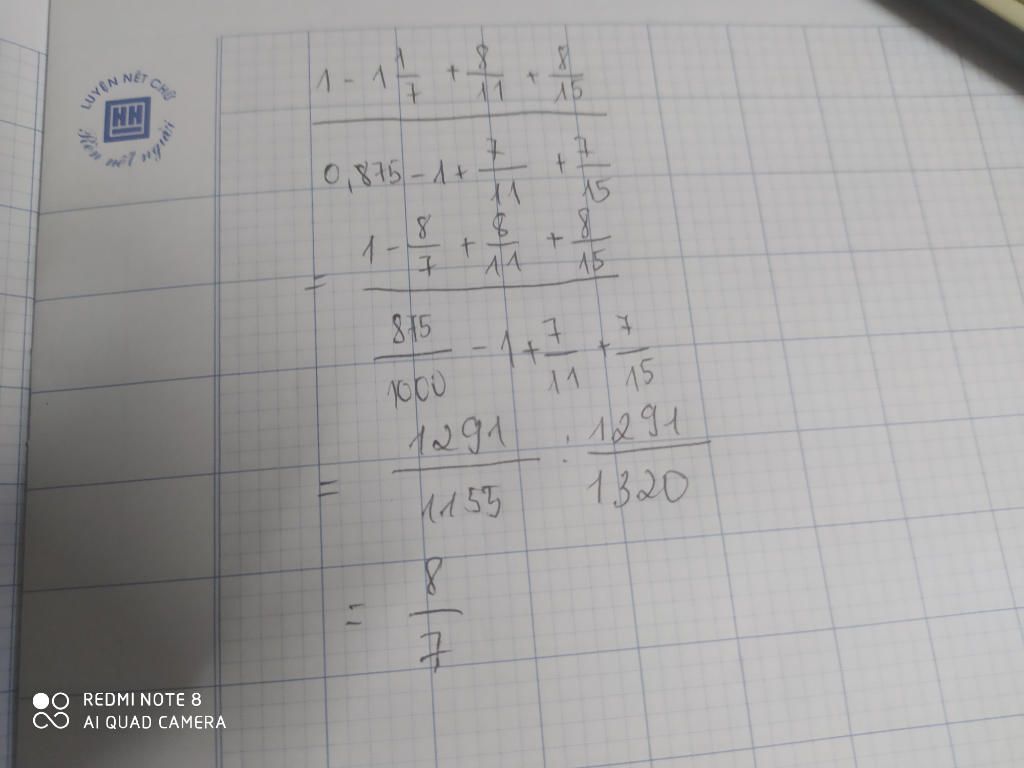 LUYỆN NÉT CHỮ
HH
1 - 1 1/7 + 8/11 + 8/15
0,875 - 1 + 7/11 + 7/15
= 1 - 8/7 + 8/11 + 8/15
875/1000 - 1 + 7/11 + 7/15
= 1291/1155 : 1291/1320
= 8/7
REDMI NOTE 8
AI QUAD CAMERA